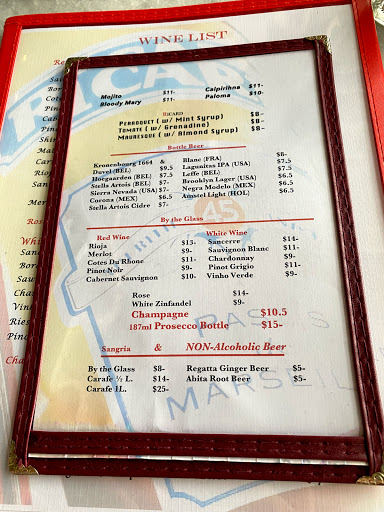 WINE LIST
RICAR
Mojito 11- Caipirihna 11-
Bloody Mary 11- Paloma 10-
RICARD
PERROQUET ( w/ Mint Syrup) $8-
TOMATE ( w/ Grenadine) $8-
MAURESQUE ( w/ Almond Syrup) $8-
Bottle Beer
Kronenbourg 1664 & Blanc (FRA) $8-
Duvel (BEL) $9.5 Lagunitas IPA (USA) $7.5
Hoegaarden (BEL) $7.5 Leffe (BEL) $7.5
Stella Artois (BEL) $7- Brooklyn Lager (USA) $6.5
Sierra Nevada (USA) $7- Negra Modelo (MEX) $6.5
Corona (MEX) $6.5 Amstel Light (HOL) $6.5
Stella Artois Cidre $7-
By the Glass
Red Wine White Wine
Rioja $13- Sancerre $14-
Merlot $9- Sauvignon Blanc $11-
Cotes Du Rhone $11- Chardonnay $9-
Pinot Noir $9- Pinot Grigio $11-
Cabernet Sauvignon $10- Vinho Verde $9-
Rose $14-
White Zinfandel $9-
Champagne $10.5
187ml Prosecco Bottle $15-
Sangria & NON-Alcoholic Beer
By the Glass $8- Regatta Ginger Beer $5-
Carafe ½ L. $14- Abita Root Beer $5-
Carafe 1L. $25-
45
MARSEIL